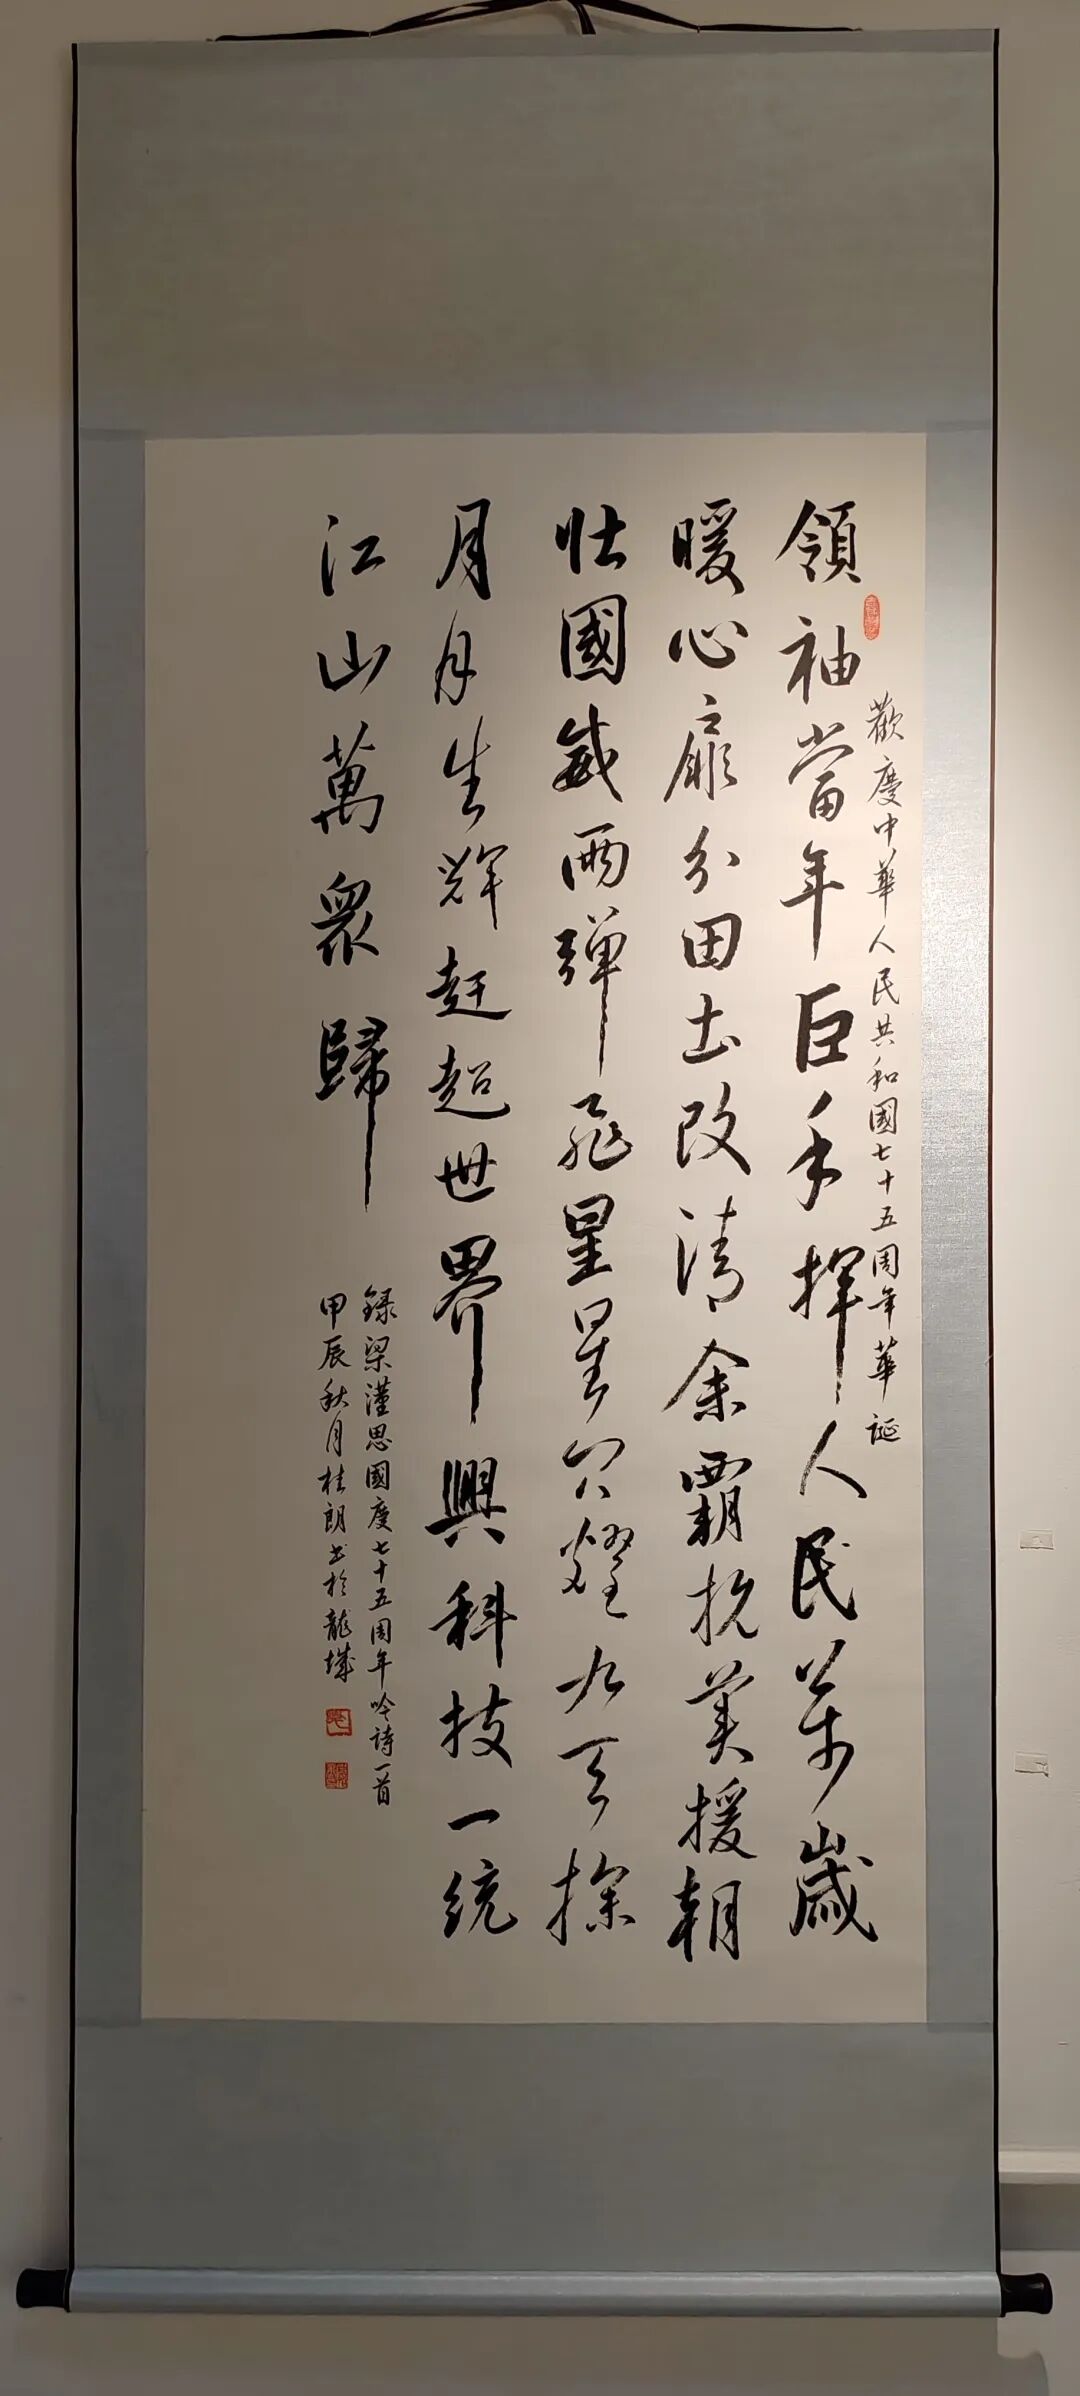 歡慶中華人民共和國七十五周年華誕
領袖當年巨手揮人民萬歲
暖心扉分田土改清余霸抗美援朝
壯國威兩彈飛星星六耀九天探
月月生輝赶超世界興科技一統
江山萬眾歸
錄梁漢思國慶七十五周年吟詩一首
甲辰秋月桂朗書於龍城